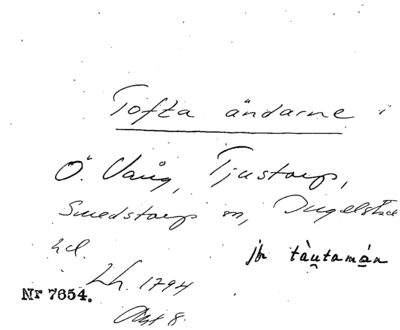 Tofta ändarne i
Ö. Vång, Tjustorp,
Smedstorps sn, Ingelstads
hd. jfr tàu̯tamán
Lh. 1794
Akt 8.
Nr 7654.